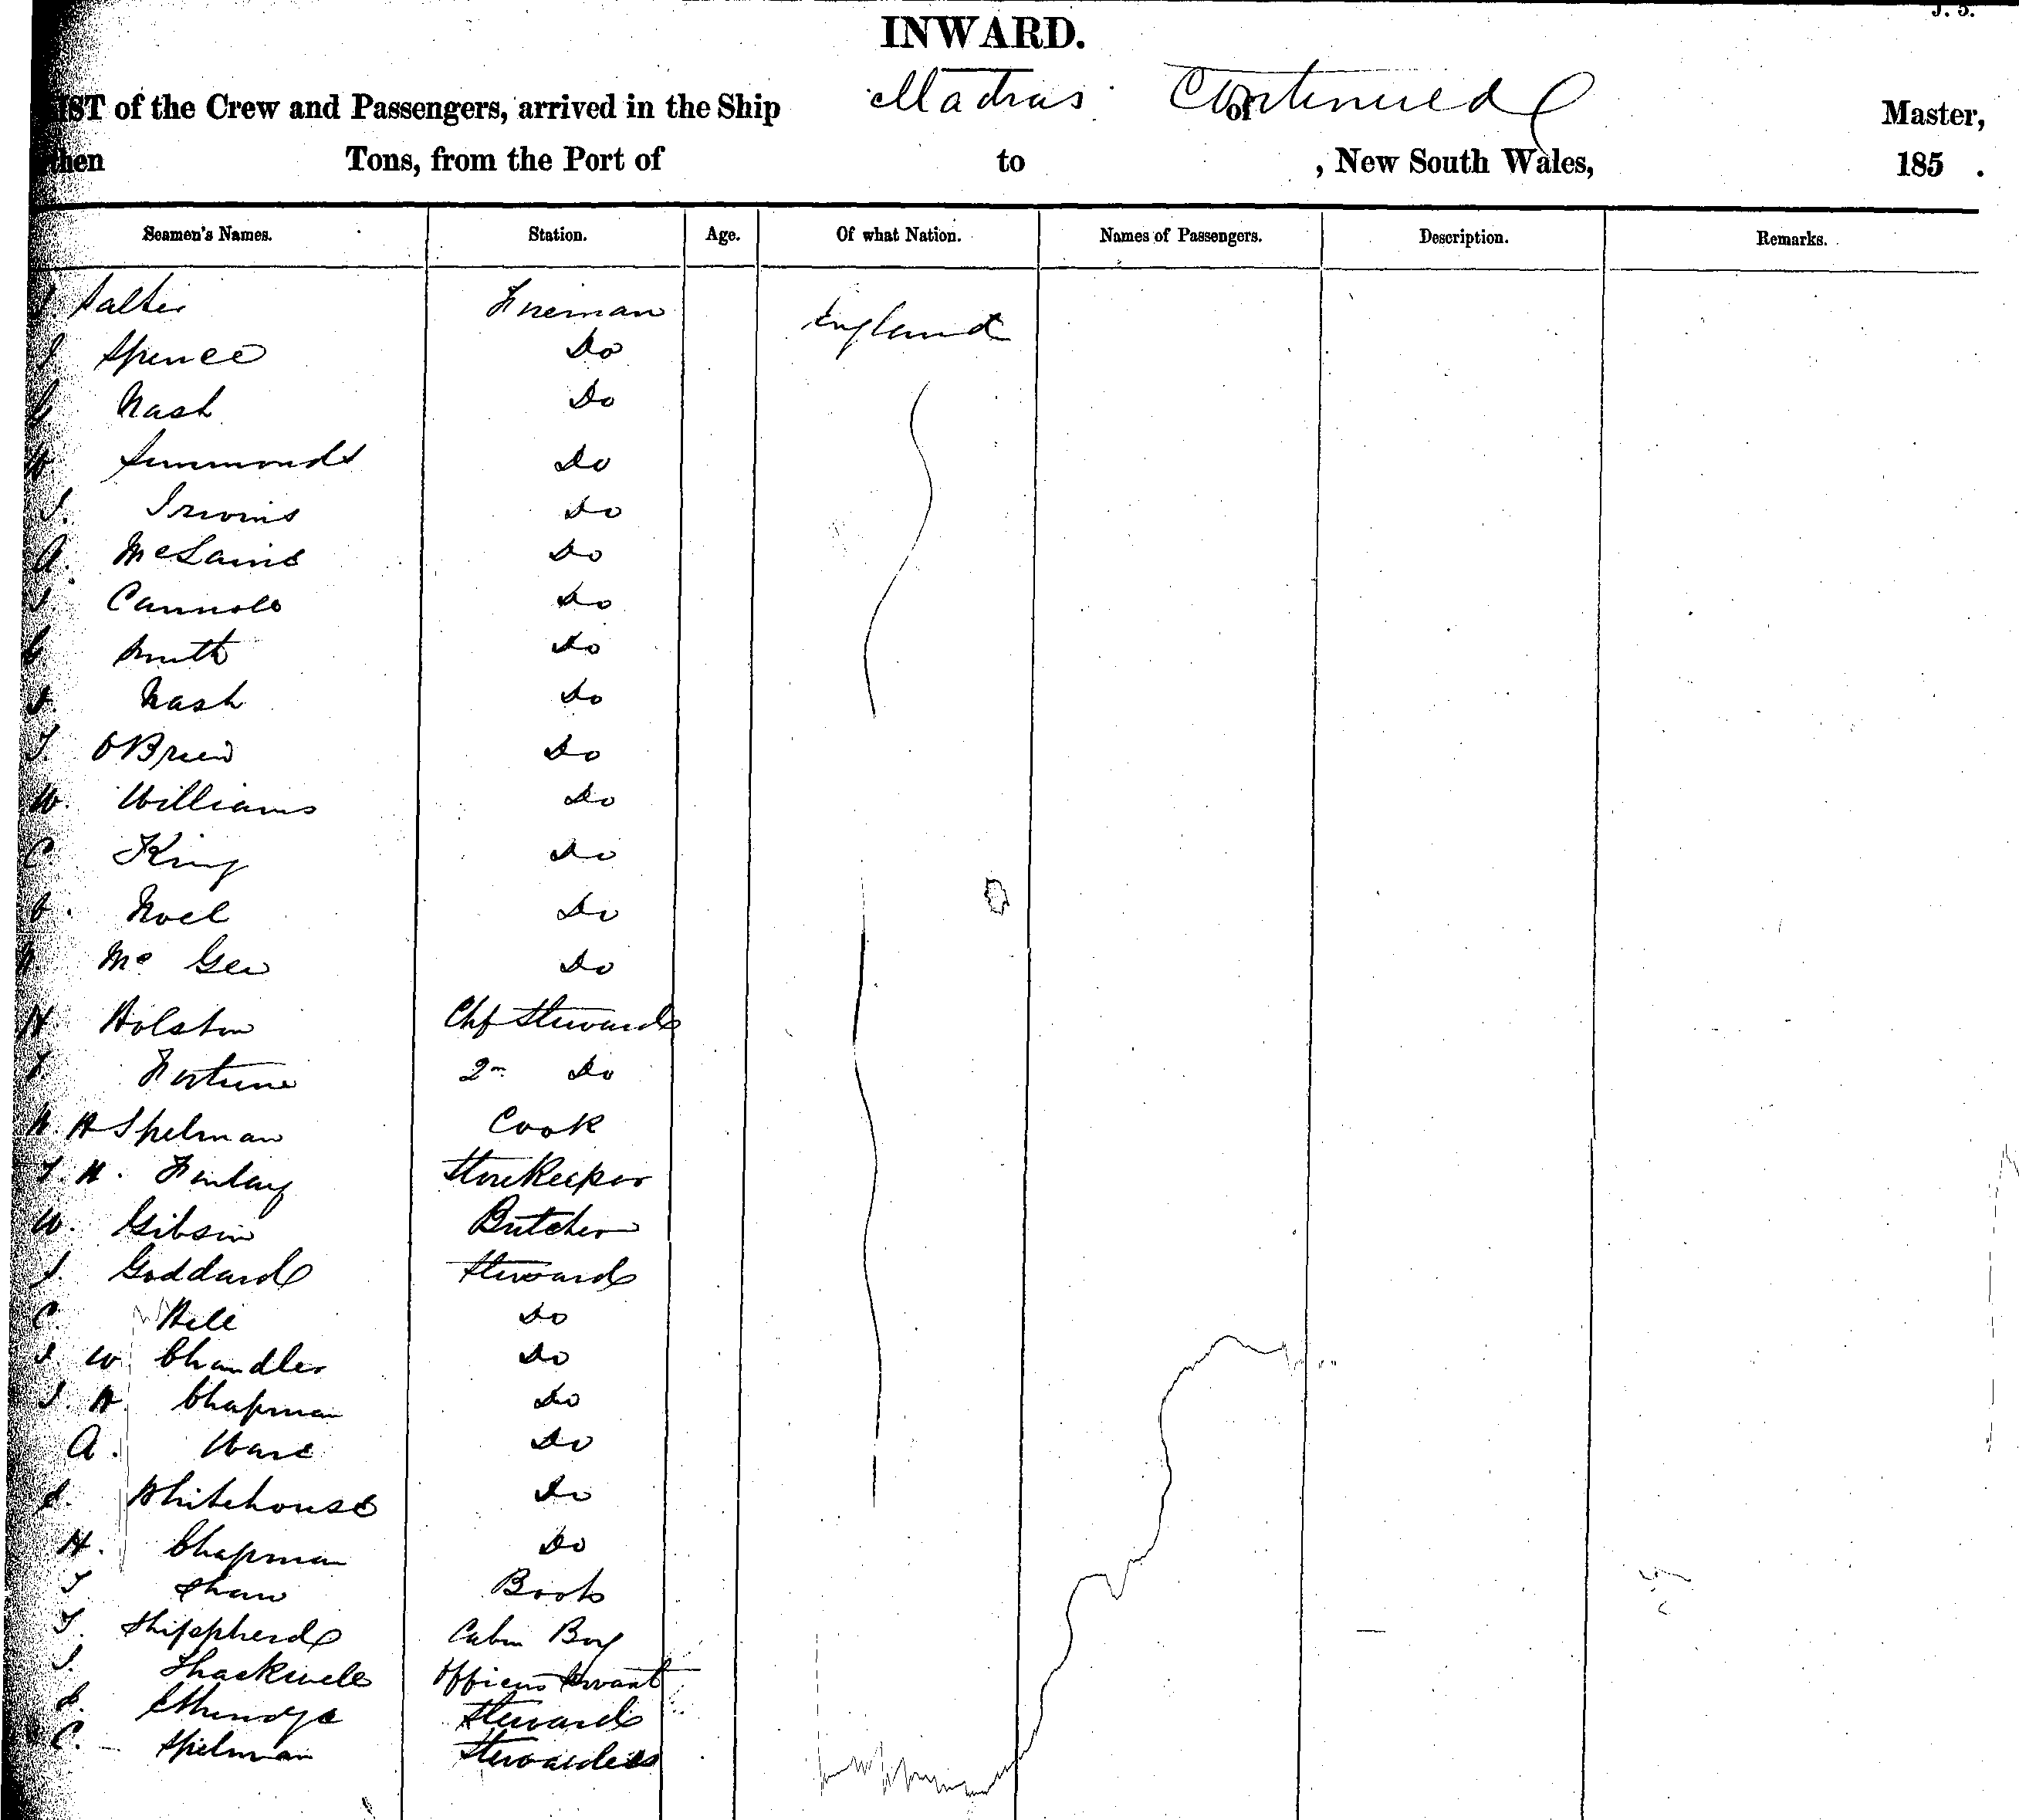 J. 5.
INWARD.
LIST of the Crew and Passengers, arrived in the Ship Madras Continued of Master,
then Tons, from the Port of to , New South Wales, 185 .
Seamen's Names. Station. Age. Of what Nation. Names of Passengers. Description. Remarks.
J. Salter Fireman England
J Spence Do
G Nash Do
W Simmonds Do
J. Irvins Do
A. McLaine Do
J Do
G Smith Do
J. Nash Do
T. OBrien Do
W. Williams Do
C. King Do
Noel Do
Mc Gee Do
H Holston Chf Steward
Fortune 2n Do
W. H Spelman Cook
T. H. Finlay Storekeeper
W. Gibson Butcher
J. Goddard Steward
C. Hill Do
J W Chandler Do
J. H. Chapman Do
A. Ware Do
Whitehouse Do
H. Chapman Do
T Shaw Boots
T. Shippherd Cabin Boy
J. Thackwell Officers Servant
E. Etheridge Steward
C. Spelman Stewardess